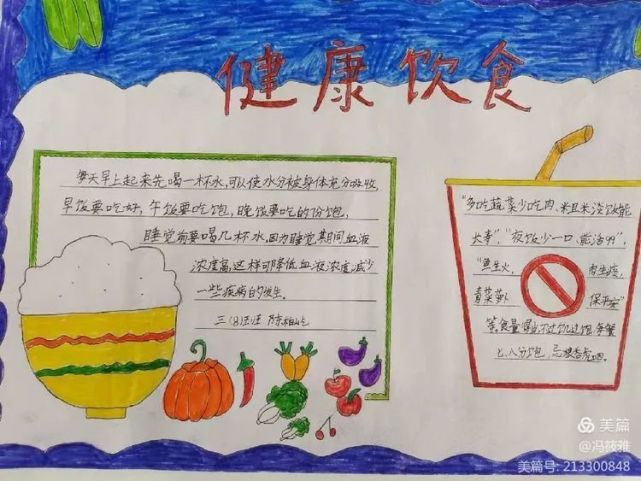 健康饮食
每天早上起来先喝一杯水,可以使水分被身体充分吸收,
早饭要吃好,午饭要吃饱,晚饭要吃的份饱,
睡觉前要喝几杯水,因为睡觉期间血液
浓度高,这样可降低血液浓度,减少
一些疾病的发生。
三(8)班 陈
"多吃蔬菜少吃肉、粗米淡饭能
大寿","夜饭少一口,能活99",
"鱼生火, 肉生痰,
青菜萝卜 保平安"
等,食量 不过饥过饱,每餐
七、八分饱,忌
美篇
@冯筱雅
美篇号: 213300848